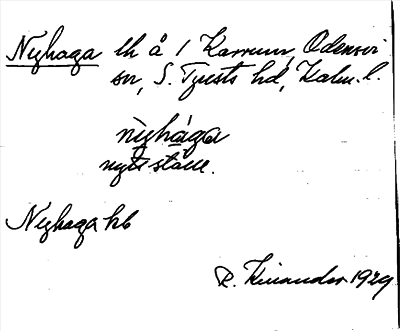 Nyhaga lh å 1 Karrum, Odensvi
sn, S. Tjusts hd, Kalm. l.
nỳhága
nytt ställe.
Nyhaga hb
R. Kinander 1929